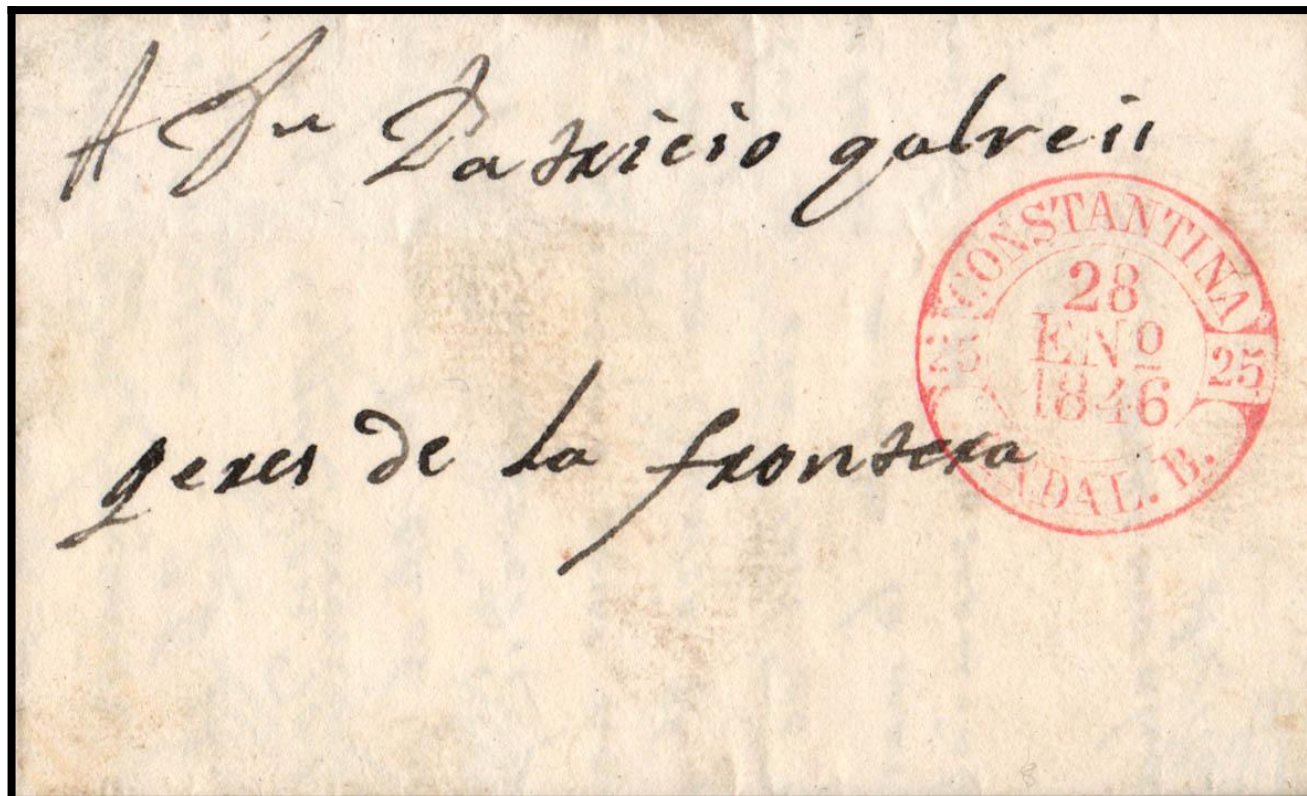 A Dn Patricio galveii
CONSTANTINA
28
ENº
1846
25 25
ANDAL. B.
geres de la frontera